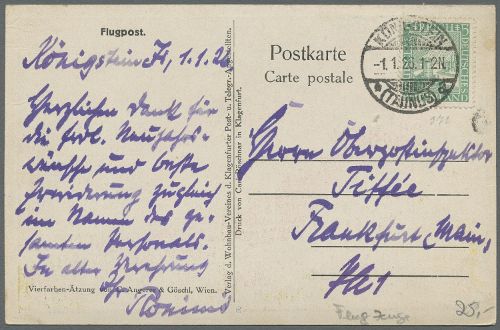 Flugpost.
Königstein Ts, 1.1.26
Herzlichen Dank für
die frdl. Neujahrs-
wünsche und beste
Erwiderung zugleich
im Namen des ge-
samten Personals.
In alter Verehrung
Ihr
Vierfarben-Ätzung von C. Angerer & Göschl, Wien.
Verlag d. Wohnbau-Vereines d. Klagenfurter Post- u. Telegr.-Angestellten.
Druck von Carl Röschnar in Klagenfurt.
Postkarte
Carte postale
KÖNIGSTEIN
-1.1.26.1-2N
(TAUNUS)
DEUTSCHES REICH
Herrn Oberpostinspektor
Tiffée
Frankfurt, Main,
PA 1
Flugzeuge
25,-